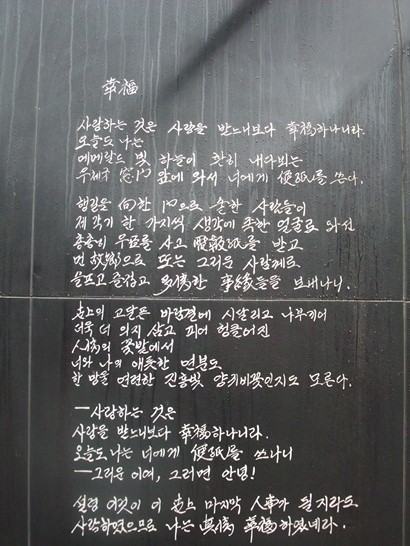 幸福
사랑하는 것은 사랑을 받느니보다 幸福하나니라.
오늘도 나는
에메랄드 빛 하늘이 환히 내다뵈는
우체국 窓門 앞에 와서 너에게 便紙를 쓴다.
행길을 向한 門으로 숱한 사람들이
제각기 한 가지씩 생각에 족한 얼굴로 와선
총총히 우표를 사고 電報紙를 받고
먼 故鄕으로 또는 그리운 사람께로
슬프고 즐겁고 多情한 事緣들을 보내나니.
世上의 고달픈 바람결에 시달리고 나부끼어
더욱 더 의지 삼고 피어 헝클어진
人情의 꽃밭에서
너와 나의 애틋한 연분도
한 망울 연연한 진홍빛 양귀비꽃인지도 모른다.
—사랑하는 것은
사랑을 받느니보다 幸福하나니라.
오늘도 나는 너에게 便紙를 쓰나니
—그리운 이여, 그러면 안녕!
설령 이것이 이 世上 마지막 人事가 될지라도
사랑하였으므로 나는 眞情 幸福하였네라.